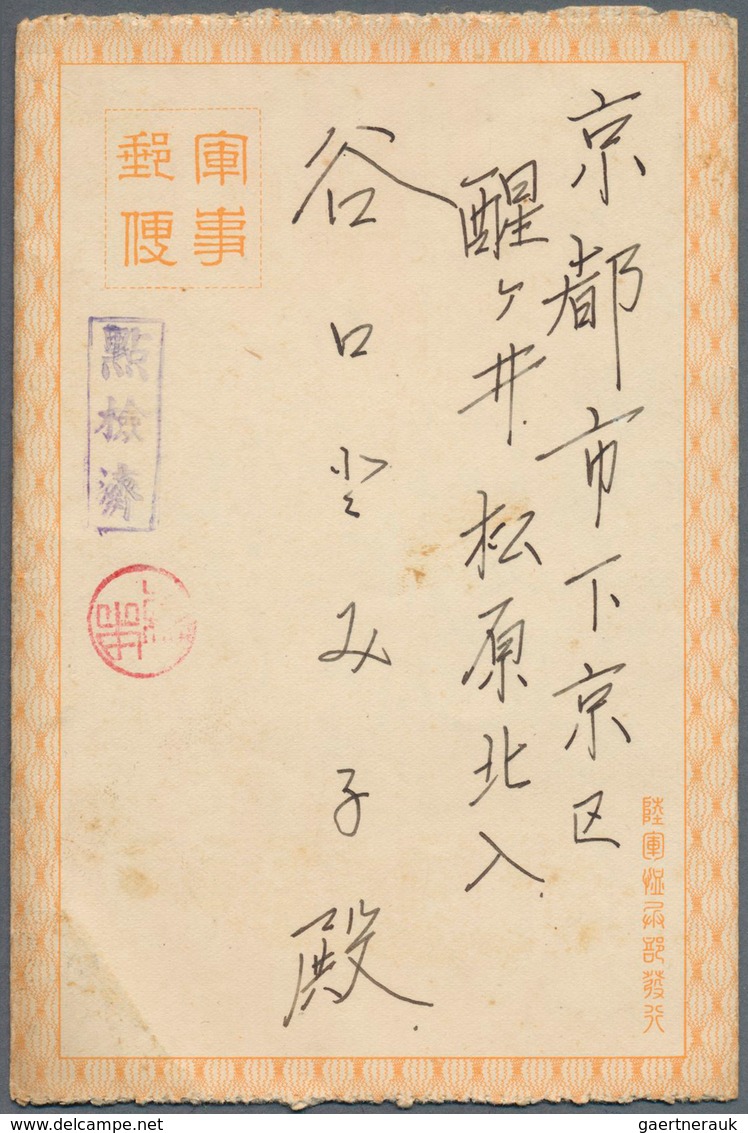 京都市下京区
醒ヶ井松原北入
谷口とみ子殿
軍事
郵便
點檢濟
陸軍恤兵部發行
gaertnerauk